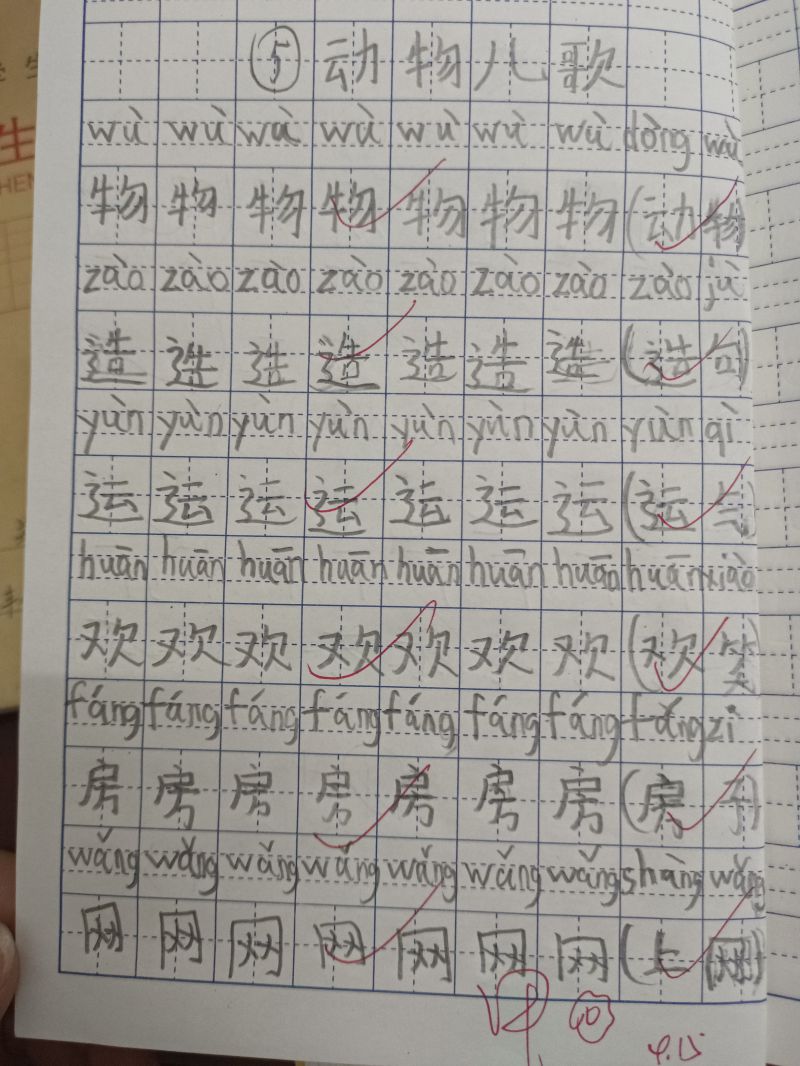 ⑤ 动物儿歌
wù wù wù wù wù wù wù dòng wù
物 物 物 物 物 物 物 (动物)
zào zào zào zào zào zào zào zào jù
造 造 造 造 造 造 造 (造句)
yùn yùn yùn yùn yùn yùn yùn yùn qì
运 运 运 运 运 运 运 (运气)
huān huān huān huān huān huān huān huān xiào
欢 欢 欢 欢 欢 欢 欢 (欢笑)
fáng fáng fáng fáng fáng fáng fáng fáng zi
房 房 房 房 房 房 房 (房子)
wǎng wǎng wǎng wǎng wǎng wǎng wǎng shàng wǎng
网 网 网 网 网 网 网 (上网)
4.15